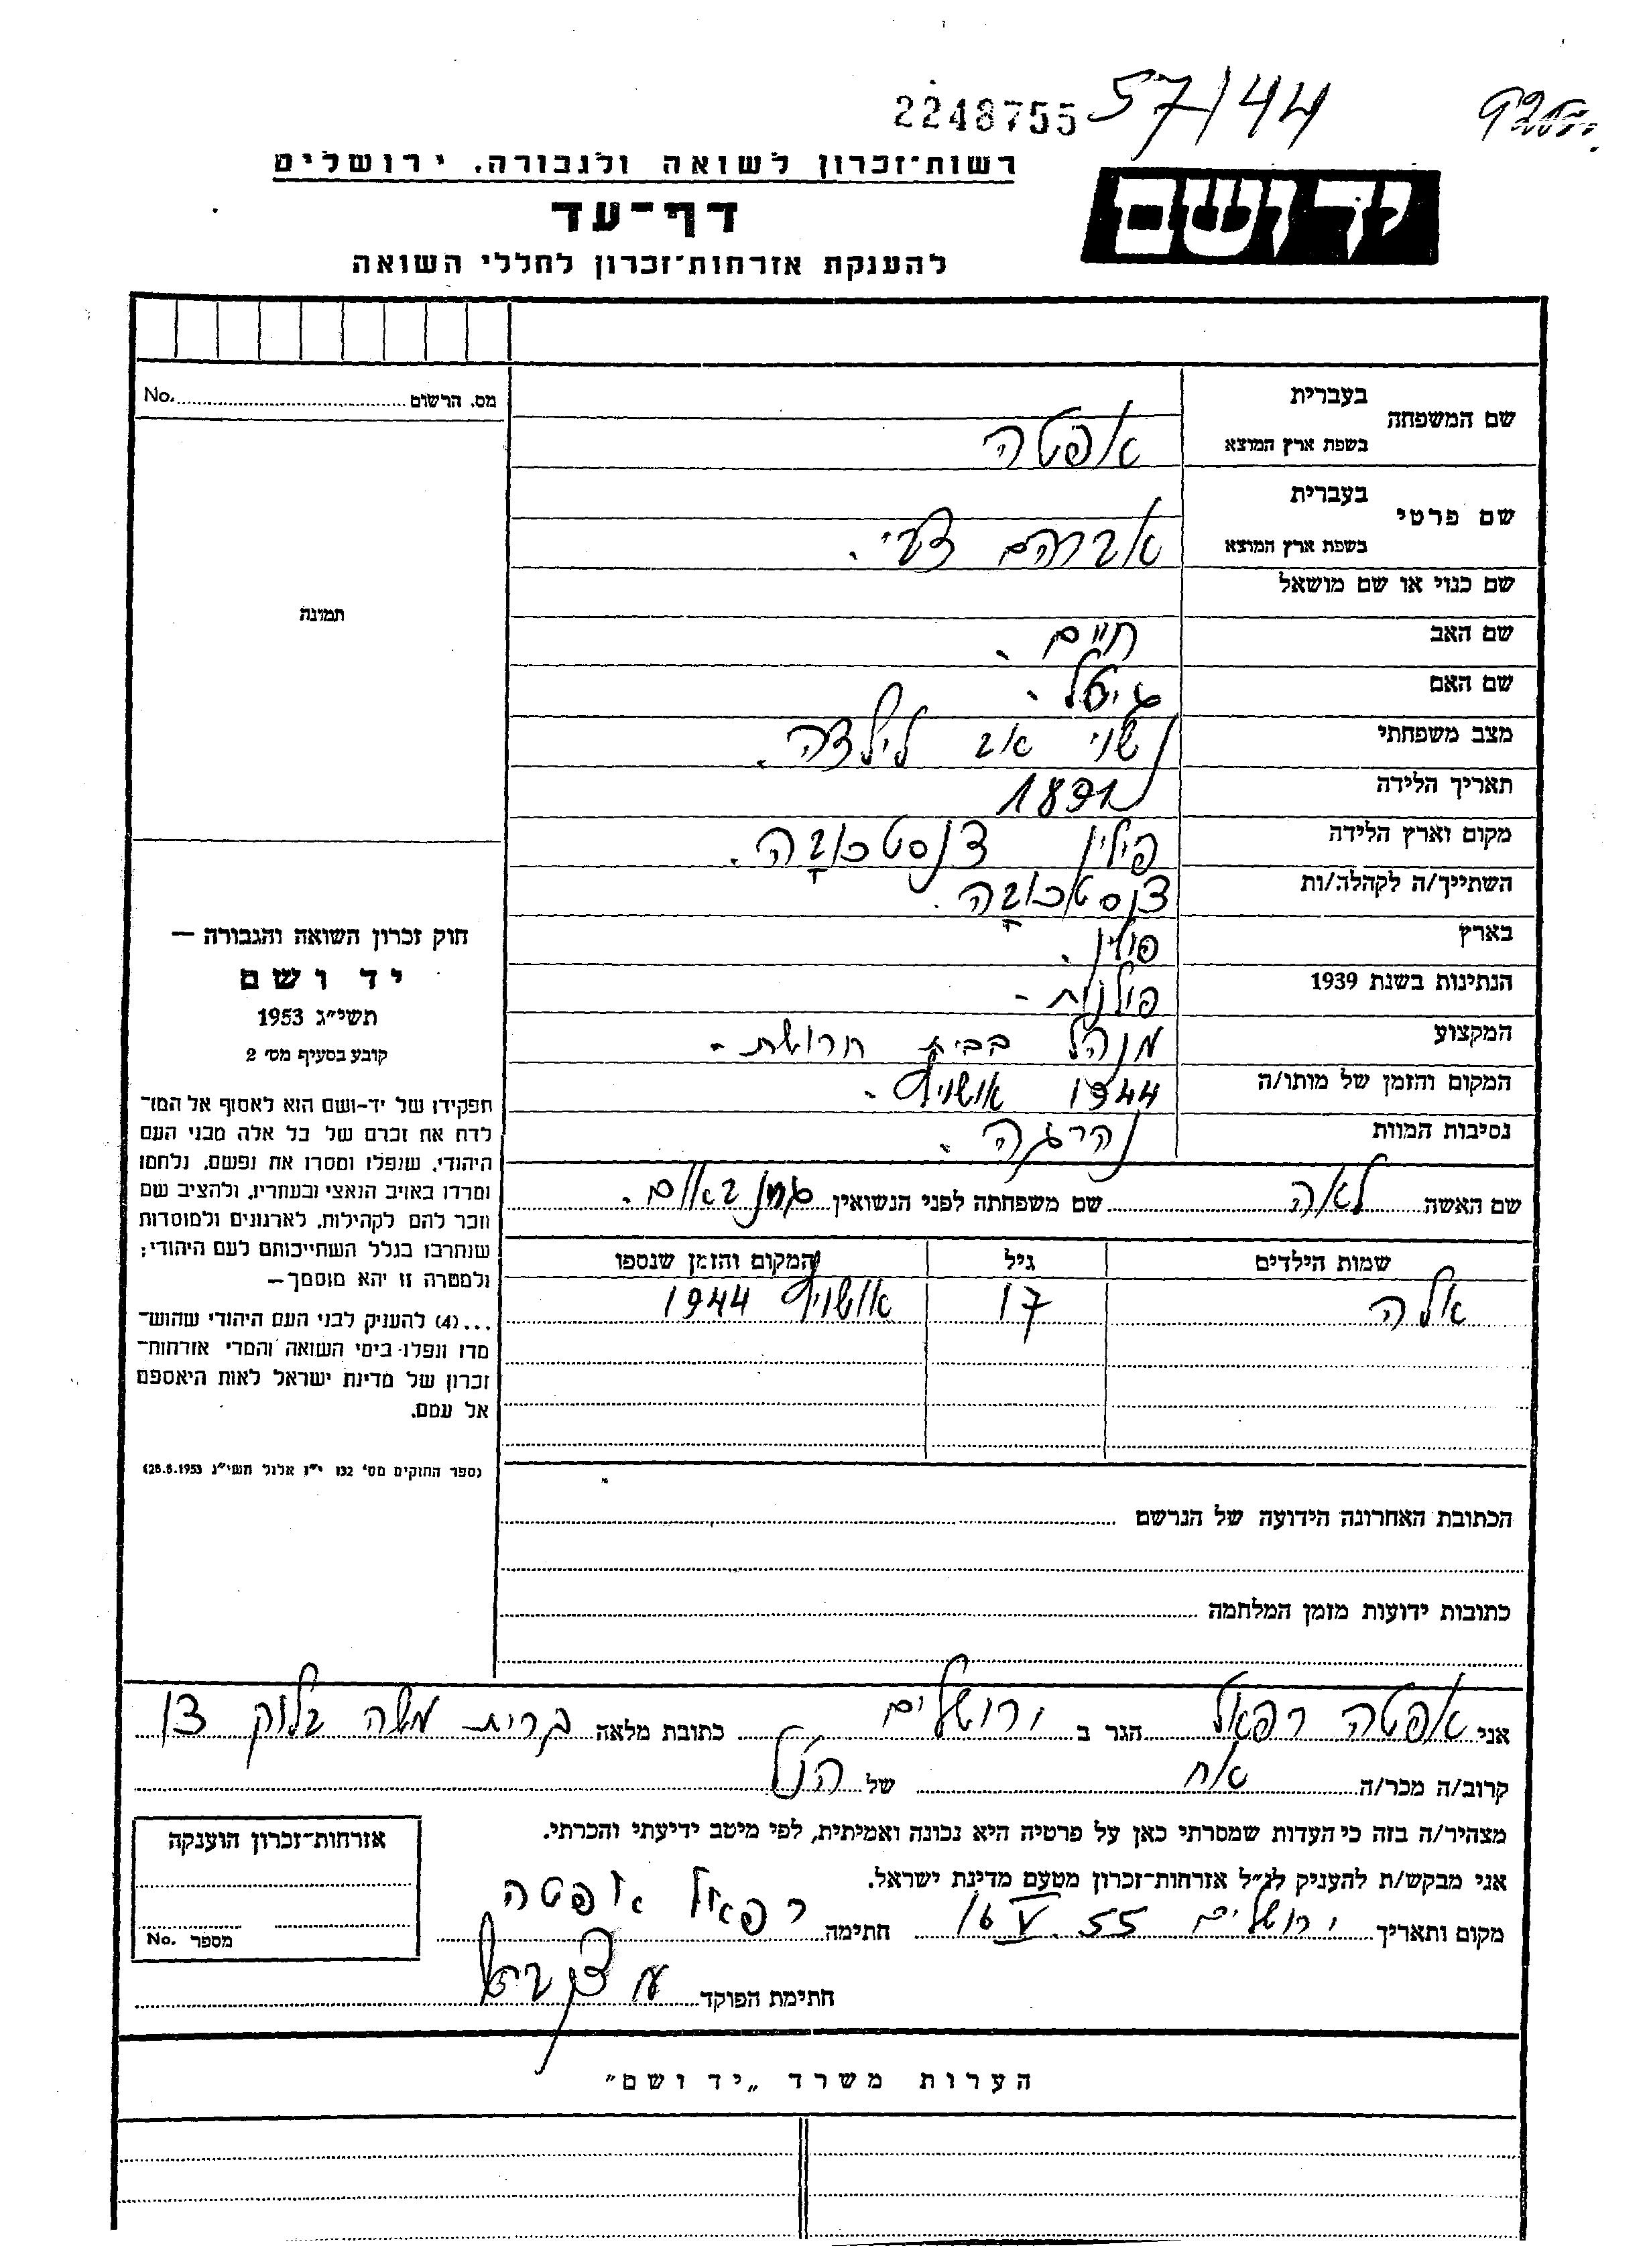 2248755 57/44
רשות־זכרון לשואה ולגבורה, ירושלים
יד ושם
דף־עד
להענקת אזרחות־זכרון לחללי השואה
No. מס. הרשום
שם המשפחה בעברית
בשפת ארץ המוצא אפטה
שם פרטי בעברית
בשפת ארץ המוצא אברהם צבי.
שם כנוי או שם מושאל
תמונה
שם האב חיים.
שם האם
מצב משפחתי נשוי אב לילדה.
תאריך הלידה
מקום וארץ הלידה פולין צ'נסטכובה.
השתייך/ה לקהלה/ות צ'נסטכובה.
בארץ פולין.
הנתינות בשנת 1939 פולנית -
המקצוע מנהל בבית חרושת -
המקום והזמן של מותו/ה 1944 אושויץ -
נסיבות המוות נהרגה.
שם האשה לאה שם משפחתה לפני הנשואין
שמות הילדים גיל המקום והזמן שנספו
אלה 17 אושויץ 1944
הכתובת האחרונה הידועה של הנרשם
כתובות ידועות מזמן המלחמה
חוק זכרון השואה והגבורה —
יד ושם
תשי״ג 1953
קובע בסעיף מס׳ 2
תפקידו של יד-ושם הוא לאסוף אל המו־
לדת את זכרם של כל אלה מבני העם
היהודי, שנפלו ומסרו את נפשם, נלחמו
ומרדו באויב הנאצי ובעוזריו, ולהציב שם
וזכר להם לקהילות, לארגונים ולמוסדות
שנחרבו בגלל השתייכותם לעם היהודי;
ולמטרה זו יהא מוסמך—
...(4) להעניק לבני העם היהודי שהוש־
מדו ונפלו בימי השואה והמרי אזרחות־
זכרון של מדינת ישראל לאות היאספם
אל עמם.
(ספר החוקים מס׳ 132 י״ז אלול תשי״ג 28.8.1953)
אני אפטה רפאל הגר ב ירושלים כתובת מלאה קרית משה בלוק 13
קרוב/ה מכר/ה אח של הנ״ל
מצהיר/ה בזה כי העדות שמסרתי כאן על פרטיה היא נכונה ואמיתית, לפי מיטב ידיעתי והכרתי.
אני מבקש/ת להעניק לנ״ל אזרחות־זכרון מטעם מדינת ישראל.
מקום ותאריך ירושלים 16 V 55 חתימה רפאל אפטה
חתימת הפוקד
אזרחות־זכרון הוענקה
מספר No.
הערות משרד „יד ושם״